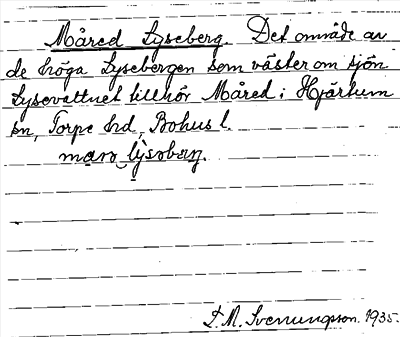 Måred Lyseberg. Det område av
de höga Lysebergen som väster om sjön
Lysevattnet tillhör Måred i Hjärtum
sn, Torpe hd, Bohus l.
marə lýsəbærj.
L. M. Svenungsson. 1935.